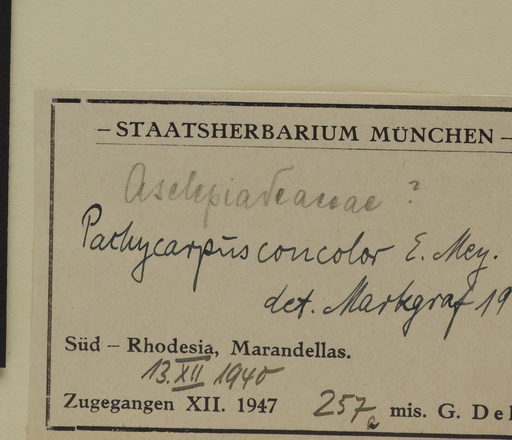 – STAATSHERBARIUM MÜNCHEN –
Asclepiadeaceae ?
Pachycarpus concolor E. Mey.
det. Markgraf 19
Süd – Rhodesia, Marandellas.
13. XII 1940
Zugegangen XII. 1947 257a mis. G. Del